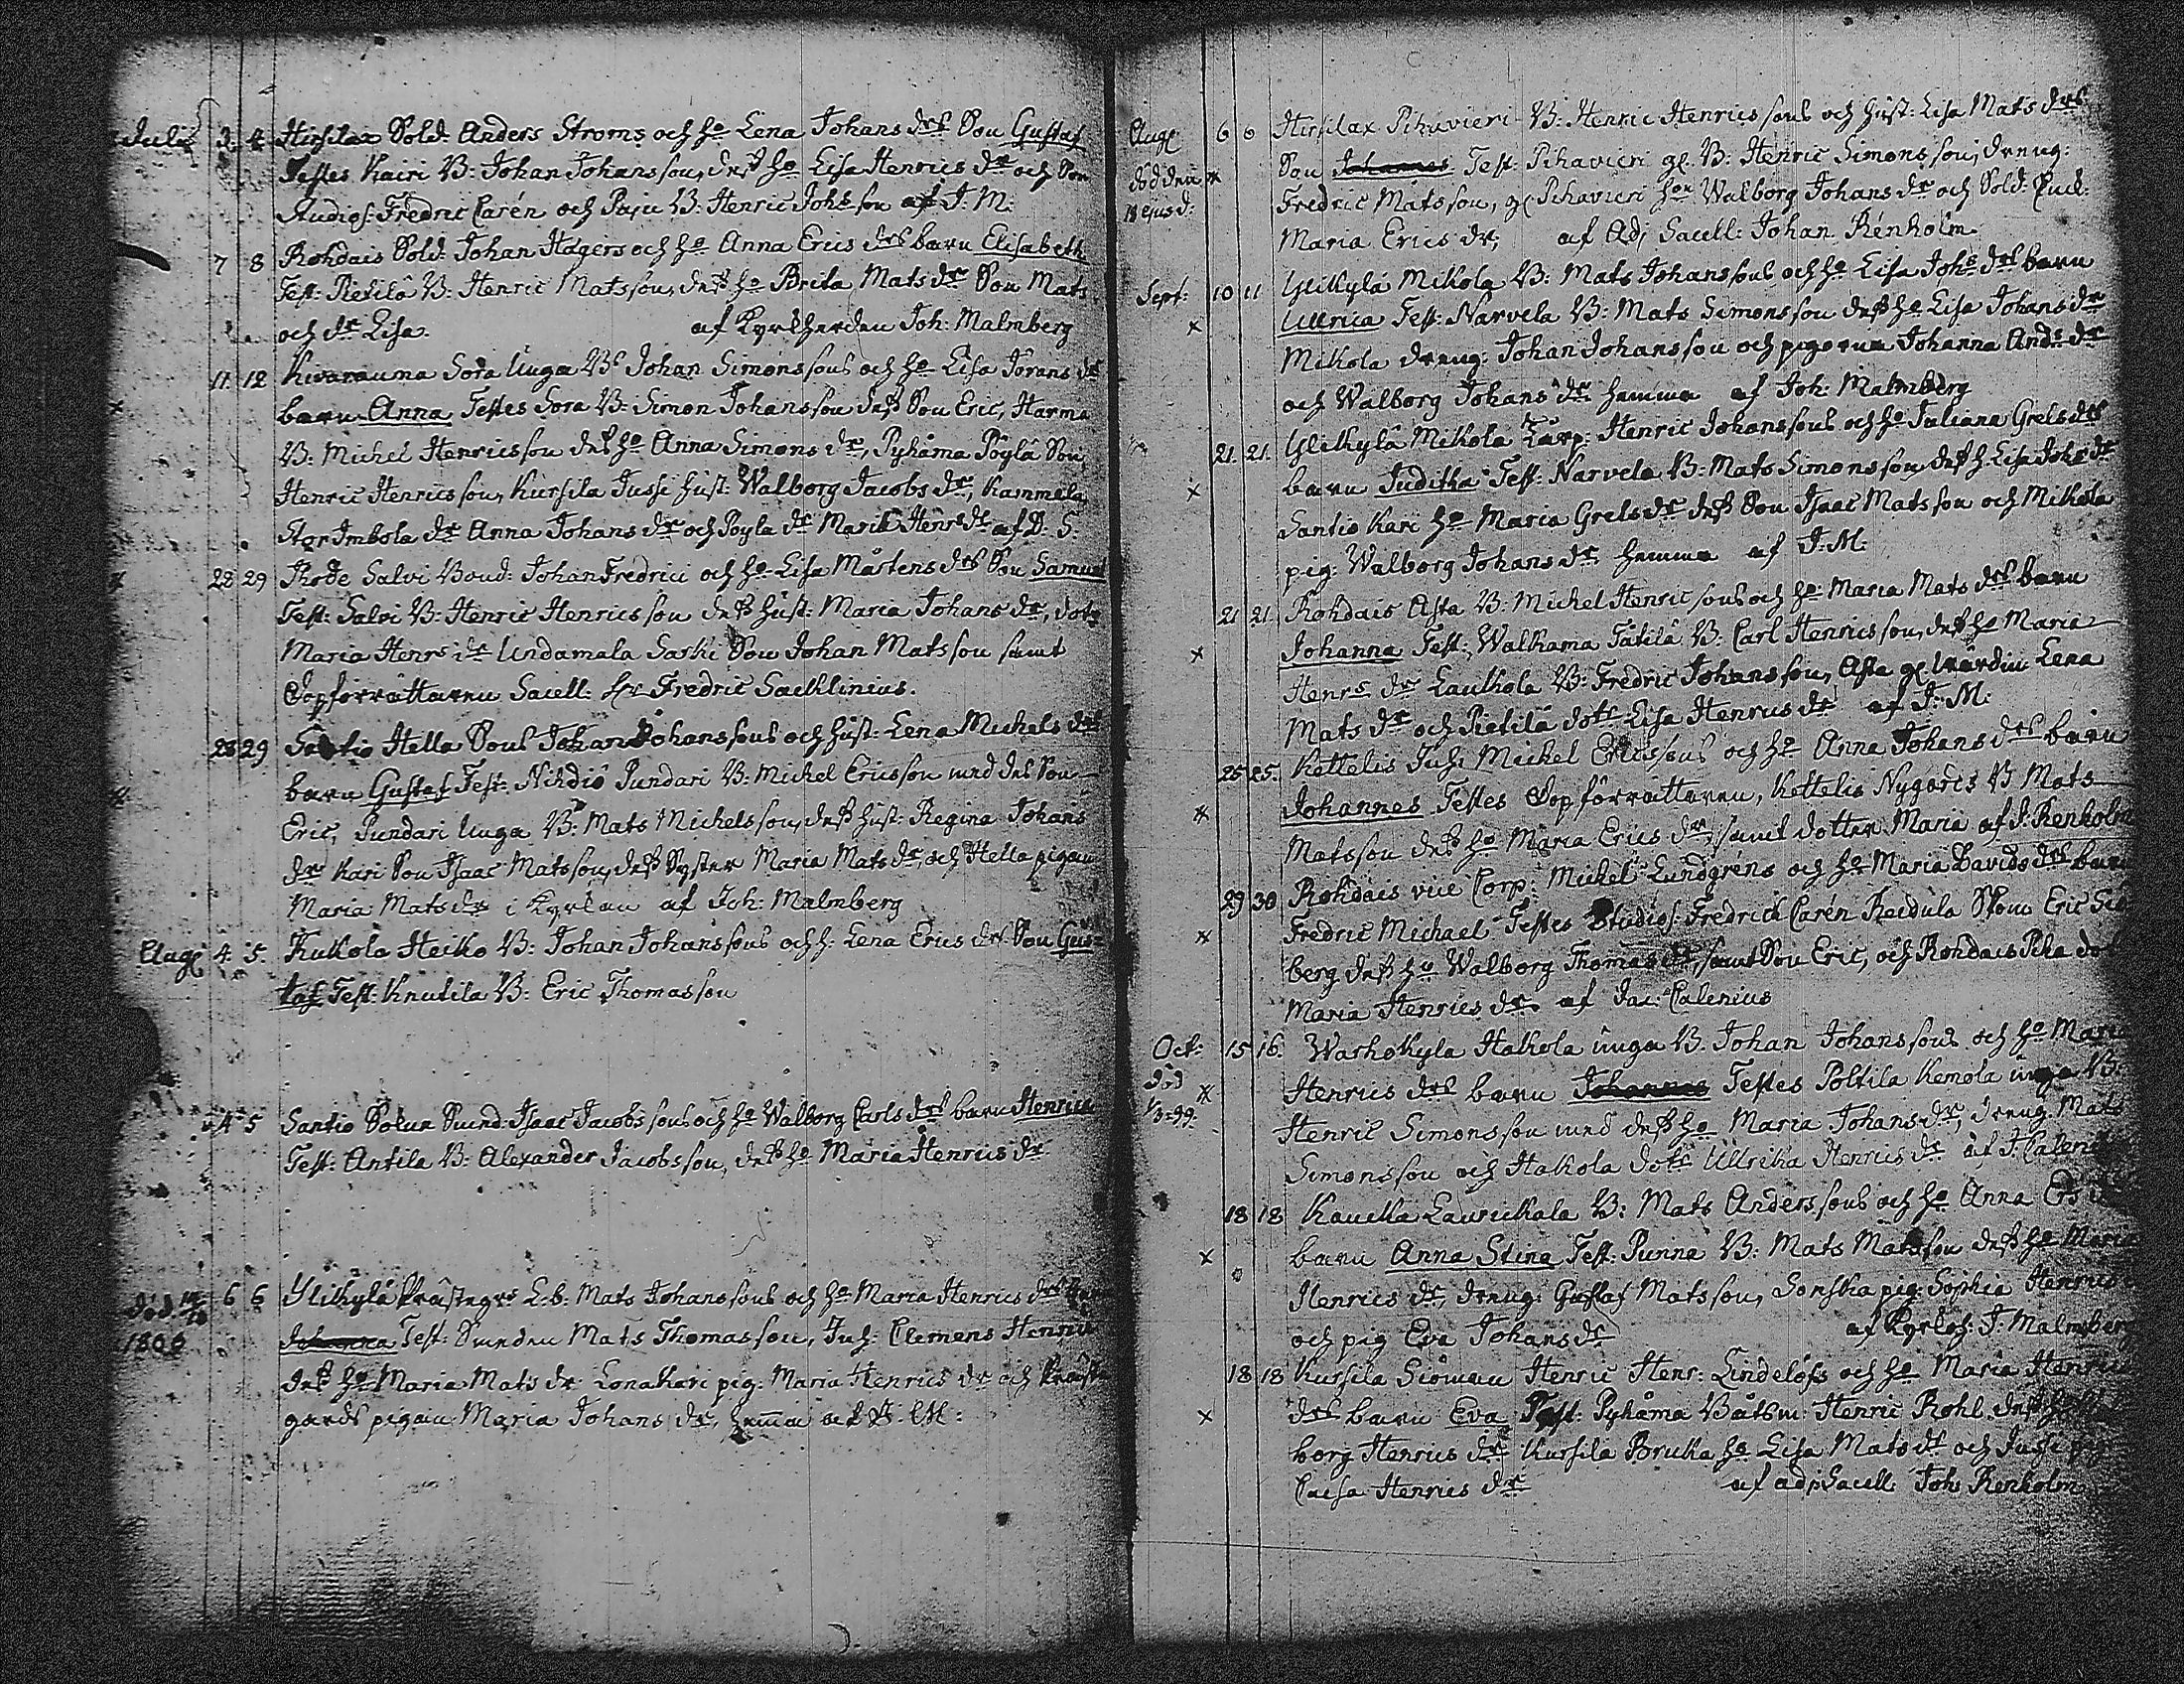 Julii 3. 4. Hirslax Sold: Anders Ströms och ho Lena Johans drs Son Gustaf
Testes Kairi B: Johan Johansson, dess ho Lisa Henrics dr och Son
Studios: Fredric Carén och Paju B: Henric Johsson af J. M:
7 8 Rohdais Sold: Johan Hagers och ho Anna Erics drs barn Elisabeth
Test: Pietilä B: Henric Matsson, dess ho Brita Mats dr Son Mats
och dr Lisa. af Kyrkherden Joh: Malmberg
11 12 Kivarauma Sora unga Bs Johan Simonssons och ho Lisa Jörans drs
barn Anna Testes Sora B: Simon Johansson dess Son Eric, Harma
B: Michel Henricsson dess ho Anna Simons dr, Pyhäma Pöylä Son
Henric Henricsson, Kursila Jussi hust: Walborg Jacobs dr, Kammela
Stor Imbola dr Anna Johans dr och Poyla dr Maria Henrs dr af D: S:
28 29 Rode Salvi Bond: Johan Fredrici och ho Lisa Mårtens drs Son Samuel
Test: Salvi B: Henric Henricsson dess hust: Maria Johans dr, dotr
Maria Henrs dr Undamala Sarki Son Johan Matsson samt
Dopförrättaren Sacell: Hr Fredric Sacklinius.
28 29 Santio Hella Sons Johan Johanssons och hust: Lena Michels drs
barn Gustaf Test: Nihdiö Pundari B: Michel Ericsson med des Son
Eric, Pundari unga B: Mats Michelsson, dess hust: Regina Johans
dr Kari Son Isaac Matsson, dess Syster Maria Mats dr och Hella pigan
Maria Mats dr i Kyrkan af Joh: Malmberg
Aug: 4. 5. Kukola Heiko B: Johan Johanssons och h: Lena Erics drs Son Gus=
taf Test: Knutila B: Eric Thomasson
4 5 Santio Isaac Jacobssons och ho Walborg Carls drs barn Henrica
Test: Antila B: Alexander Jacobsson, dess ho Maria Henrics dr
död 1806 6 6 Ylikylä Prästegrs L:b: Mats Johanssons och ho Maria Henrics drs
Johanna Test: Mats Thomasson, Inh: Clemens
dess ho Maria Mats dr Lonakari pig: Maria Henrics dr och Präste
gårds pigan Maria Johans dr, hemma af J: M:
Aug: 6 6 Hirslax Pihavieri B: Henric Henricssons och hust: Lisa Mats drs
död den x Son Johannes Test: Pihavieri gl: B: Henric Simonsson, dreng:
ejusd: Fredric Matsson, gl Pihavieri hon Walborg Johans dr och Sold:
Maria Erics dr, af Adj Sacell: Johan Renholm
Sept: 10 11 Ylikylä Mikola B: Mats Johanssons och ho Lisa Johs drs barn
x Ullrica Test: Narvela B: Mats Simonsson dess ho Lisa Johans dr
Mikola dreng: Johan Johansson och pigorna Johanna Ands dr
och Walborg Johans dr hemma af Joh: Malmberg
21. 21. Ylikylä Mikola Henric Johanssons och ho Juliana Grels drs
x barn Juditha Test: Narvela B: Mats Simonsson, dess h: Lisa Johs dr
Santio Kari ho Maria Grels dr dess Son Isaac Matsson och Mikola
pig: Walborg Johans dr hemma af J. M:
21 21. Rohdais Asta B: Michel Henricssons och ho Maria Mats drs barn
x Johanna Test: Walkama Tätilä B: Carl Henricsson, dess ho Maria
Henrs dr Laukola B: Fredric Johansson, Asta gl värdin Lena
Mats dr och Pietilä dotr Lisa Henrics dr af J: M:
25 25. Kettelis Inh: Michel Ericssons och ho Anna Johans drs barn
x Johannes Testes Dopförrättaren, Kettelis Nygårds B Mats
Matsson dess ho Maria Erics dr, samt dotter Maria af J: Renholm
29 30 Rohdais vice Corp: Michel Lundgréns och ho Maria Davids drs barn
x Fredric Michael Testes Studios: Fredrich Carén Eric
berg dess ho Walborg Thomas dr samt Son Eric, och Rohdais
Maria Henrics dr af Jac: Calenius
Oct: 15 16. Warhokyla Hakola unga B. Johan Johanssons och ho Maria
död x Henrics drs barn Johannes Testes Poltila Kemola unga B:
1/3-99. Henric Simonsson med dess ho Maria Johans dr, dreng: Mats
Simonsson och Hakola dotr Ullrika Henrics dr af J: Calenius
18 18 Kaukka Laurickala B: Mats Anderssons och ho Anna
x barn Anna Stina Test: Punna B: Mats Matsson dess ho Maria
Henrics dr, dreng: Gustaf Matsson, pig: Sophia
och pig Eva Johans dr af Kyrkoh. J: Malmberg
18 18 Kursila Sioman Henric Henr: Lindelöfs och ho Maria Henrics
x drs barn Eva Test: Pyhäma Båtsm: Henric Rohl. dess
borg Henrics dr Kursila Brukka ho Lisa Mats dr och Jussi
Caisa Henrics dr af adj: Sacell: Joh: Renholm